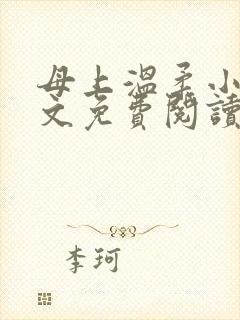 母上溫柔小
文免費閱讀
李珂